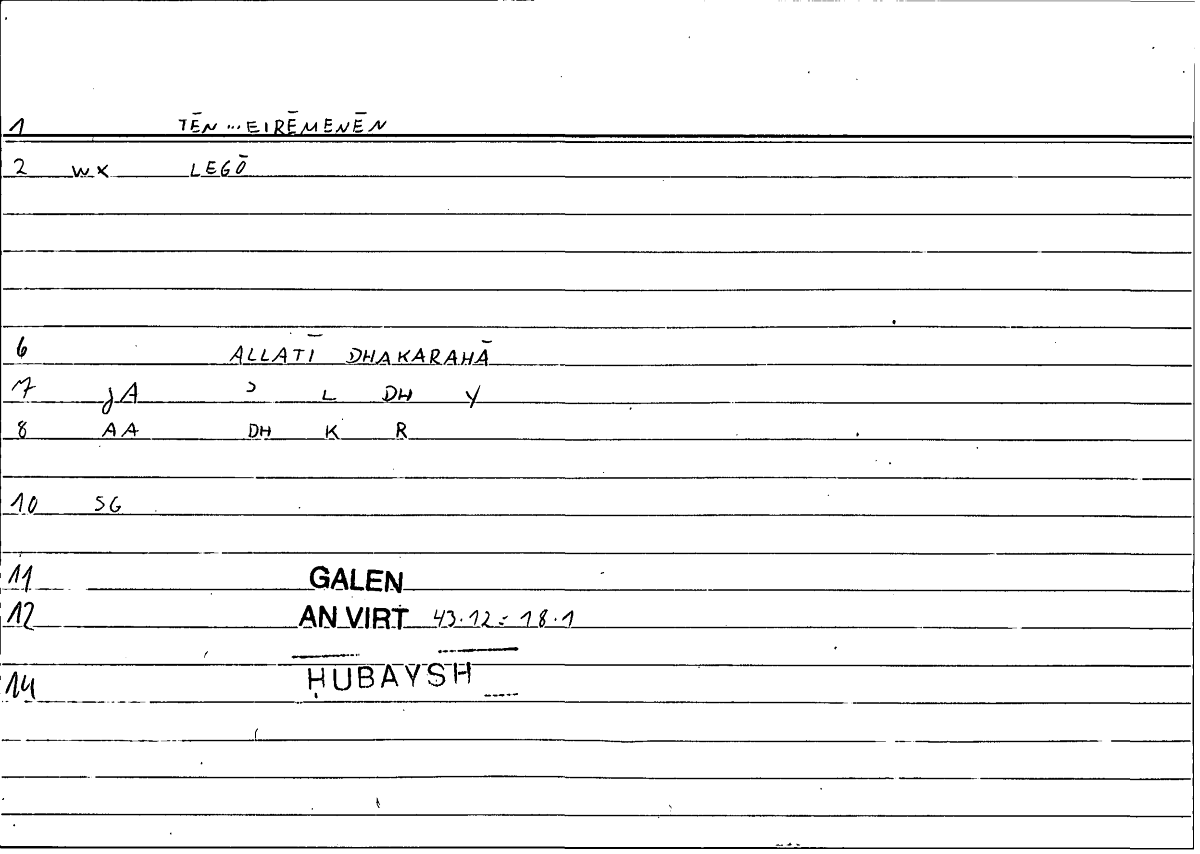 1 TĒN ... EIRĒMENĒN
2 WX LEGŌ
6 ALLATĪ DHAKARAHĀ
7 JA ʾ L DH Y
8 AA DH K R
10 SG
11 GALEN
12 AN VIRT 43.12 = 18.1
14 ḤUBAYSH